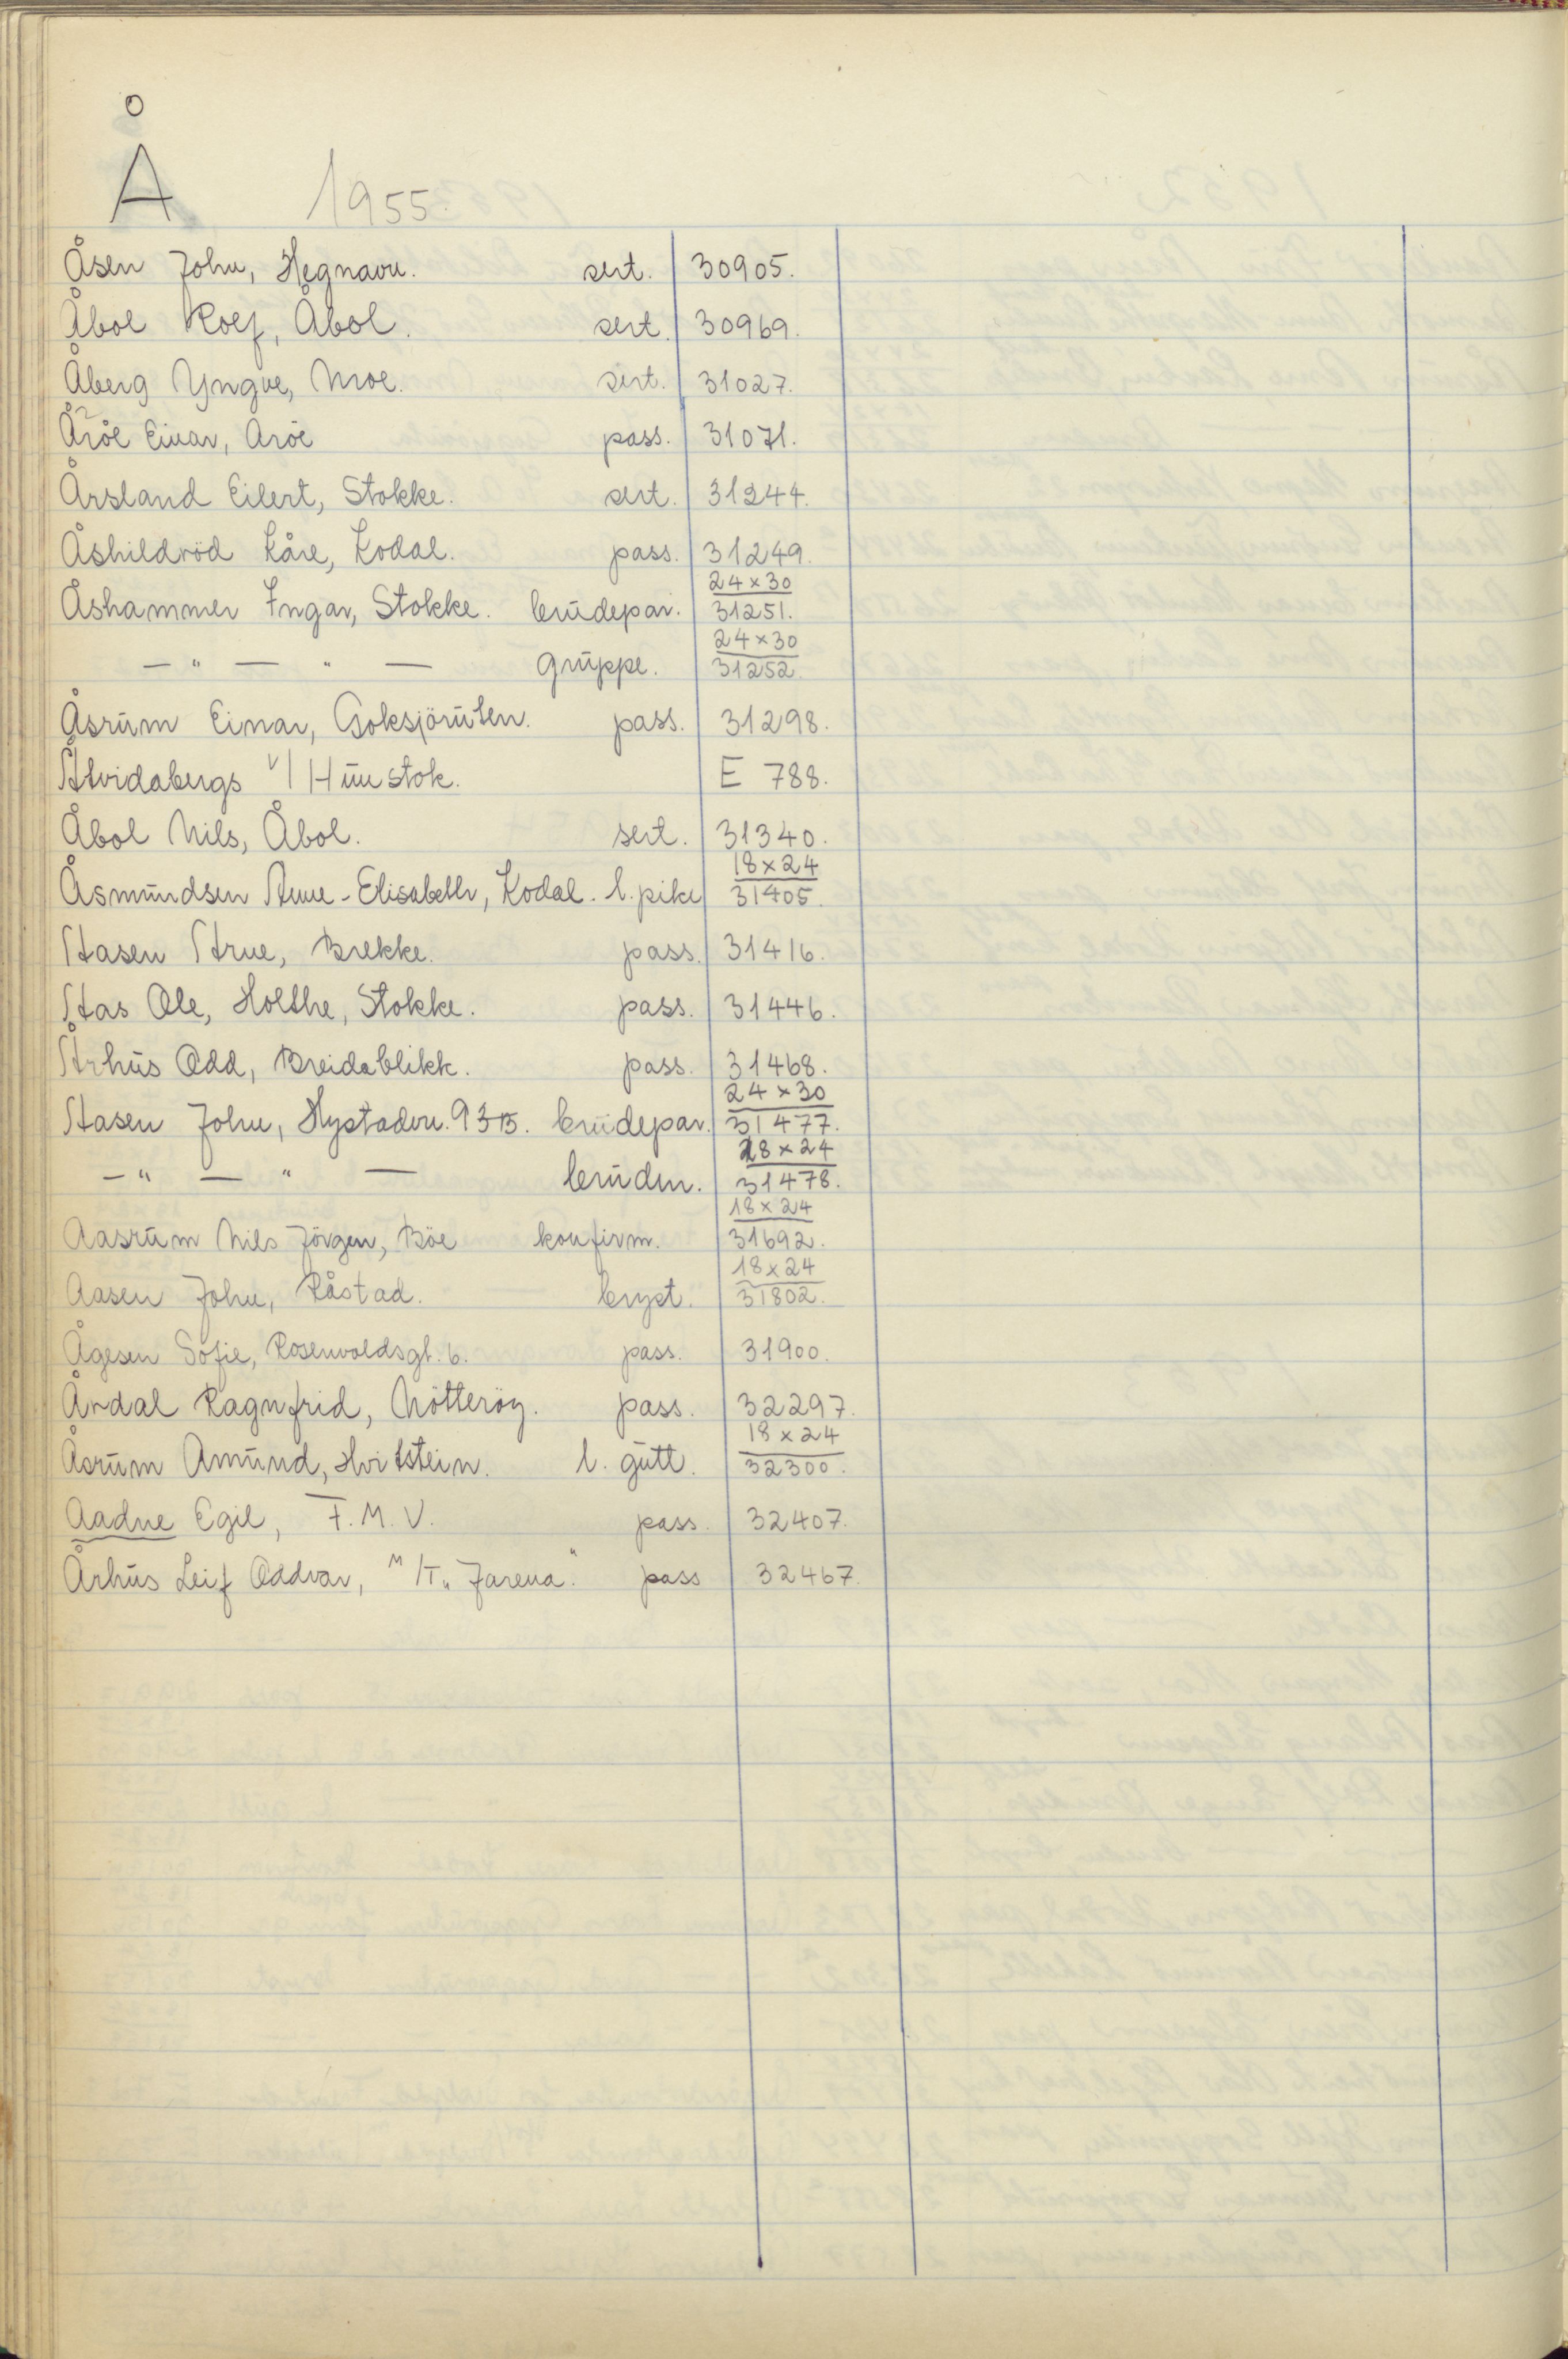 Å 1955.
Åsen John, Hegnavn. sert. 30905.
Åbol Rolf, Åbol. sert. 30969.
Åberg Yngve, Moe. sert. 31027.
Åröe Einar, Aröe pass. 31071.
Årsland Eilert, Stokke. sert. 31244.
Åshildröd Kåre, Kodal. pass. 31249.
24 x 30
Åshammer Ingar, Stokke. brudepar. 31251.
24 x 30
— " — " — gruppe. 31252.
Åsrum Einar, Goksjöruten. pass. 31298.
Åtvidabergs v/ Hünstok. E 788.
Åbol Nils, Åbol. sert. 31340.
18 x 24
Åsmundsen Anne-Elisabeth, Kodal. l. pike 31405.
Aasen Arne, Brekke. pass. 31416.
Aas Ole, Holthe, Stokke. pass. 31446.
Århus Odd, Breidablikk. pass. 31468.
24 x 30
Aasen John, Hystadvn. 93 B. brudepar. 31477.
18 x 24
— " — " — bruden. 31478.
18 x 24
Aasrum Nils Jörgen, Böe konfirm. 31692.
18 x 24
Aasen John, Råstad. bryst. 31802.
Ågesen Sofie, Rosenvoldsgt. 6. pass. 31900.
Årdal Ragnfrid, Nötteröy. pass. 32297.
18 x 24
Åsrum Amund, Hvitstein. l. gutt. 32300.
Aadne Egil, F. M. V. pass. 32407.
Århus Leif Oddvar, M/T „Jarena." pass 32467.